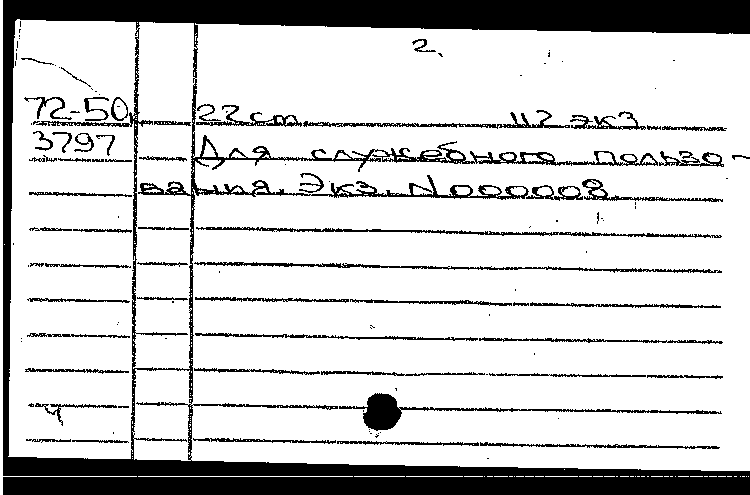 2.
72-50 22 cm. 112 экз
3797 Для служебного пользо-
вания. Экз. N000008
4